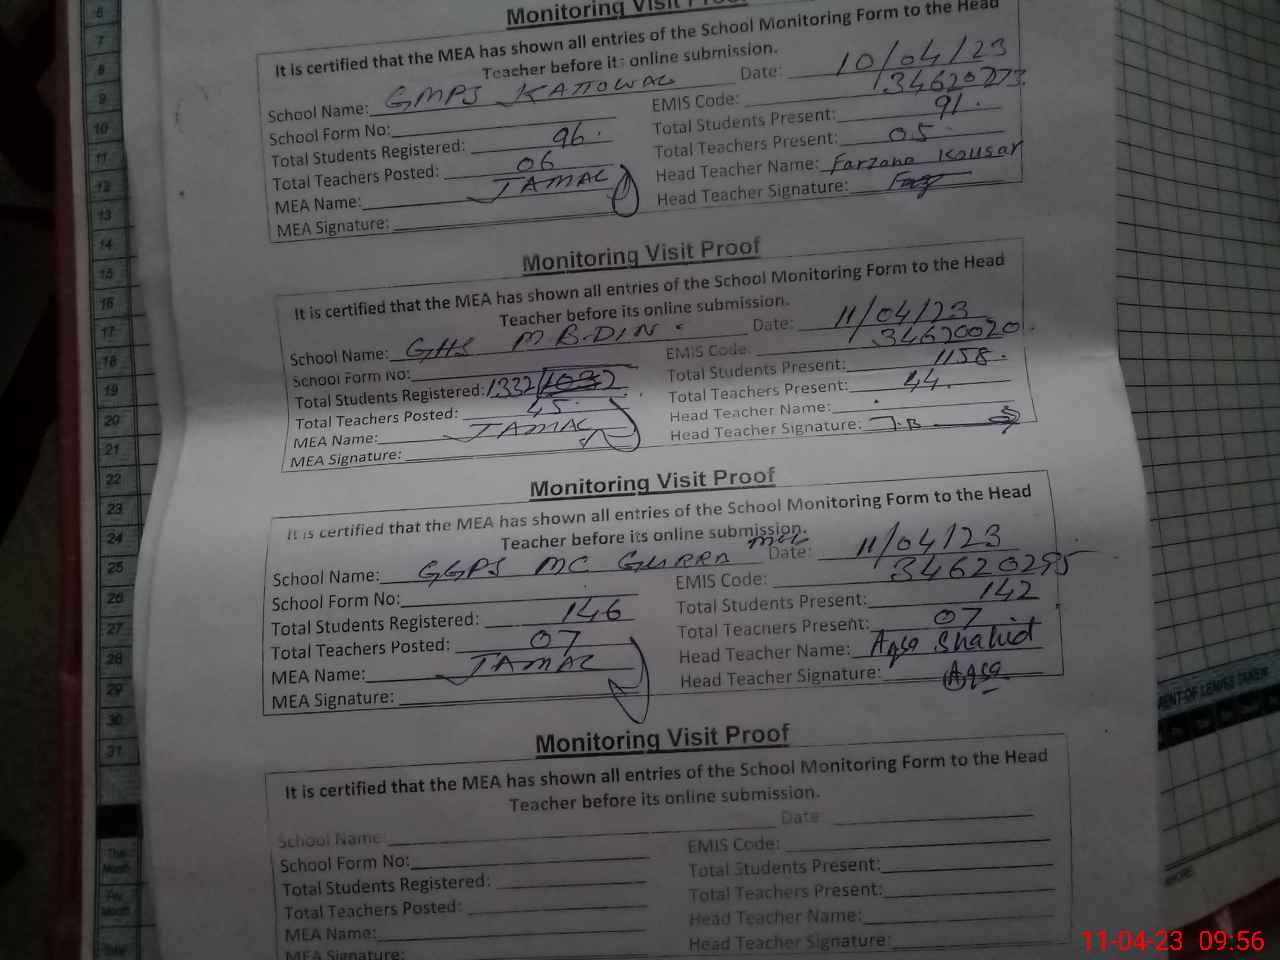 Monitoring Visit Proof
It is certified that the MEA has shown all entries of the School Monitoring Form to the Head
Teacher before its online submission.
Date: 10/04/23
School Name: GMPS KATTOWAL
EMIS Code: 34620273
School Form No:
Total Students Present: 91.
Total Students Registered: 96.
Total Teachers Present: 05
Total Teachers Posted: 06
Head Teacher Name: Farzana Kousar
MEA Name: JAMAL
Head Teacher Signature:
MEA Signature:
Monitoring Visit Proof
It is certified that the MEA has shown all entries of the School Monitoring Form to the Head
Teacher before its online submission.
Date: 11/04/23
School Name: GHS M.B.DIN.
EMIS Code: 34620020.
School Form No:
Total Students Present: 1158.
Total Students Registered: 1332
Total Teachers Present: 44.
Total Teachers Posted: 45.
Head Teacher Name:
MEA Name: JAMAL
Head Teacher Signature: J.B
MEA Signature:
Monitoring Visit Proof
It is certified that the MEA has shown all entries of the School Monitoring Form to the Head
Teacher before its online submission.
Date: 11/04/23
School Name: GGPS MC GURRA
EMIS Code: 34620295
School Form No:
Total Students Present: 142
Total Students Registered: 146
Total Teachers Present: 07
Total Teachers Posted: 07
Head Teacher Name: Aqsa Shahid
MEA Name: JAMAL
Head Teacher Signature: Aqsa
MEA Signature:
Monitoring Visit Proof
It is certified that the MEA has shown all entries of the School Monitoring Form to the Head
Teacher before its online submission.
Date:
School Name:
EMIS Code:
School Form No:
Total Students Present:
Total Students Registered:
Total Teachers Present:
Total Teachers Posted:
Head Teacher Name:
MEA Name:
Head Teacher Signature:
MEA Signature:
6
7
8
9
10
11
12
13
14
15
16
17
18
19
20
21
22
23
24
25
26
27
28
29
30
31
The
Month
Month
OF LEAVES TAKEN
11-04-23 09:56